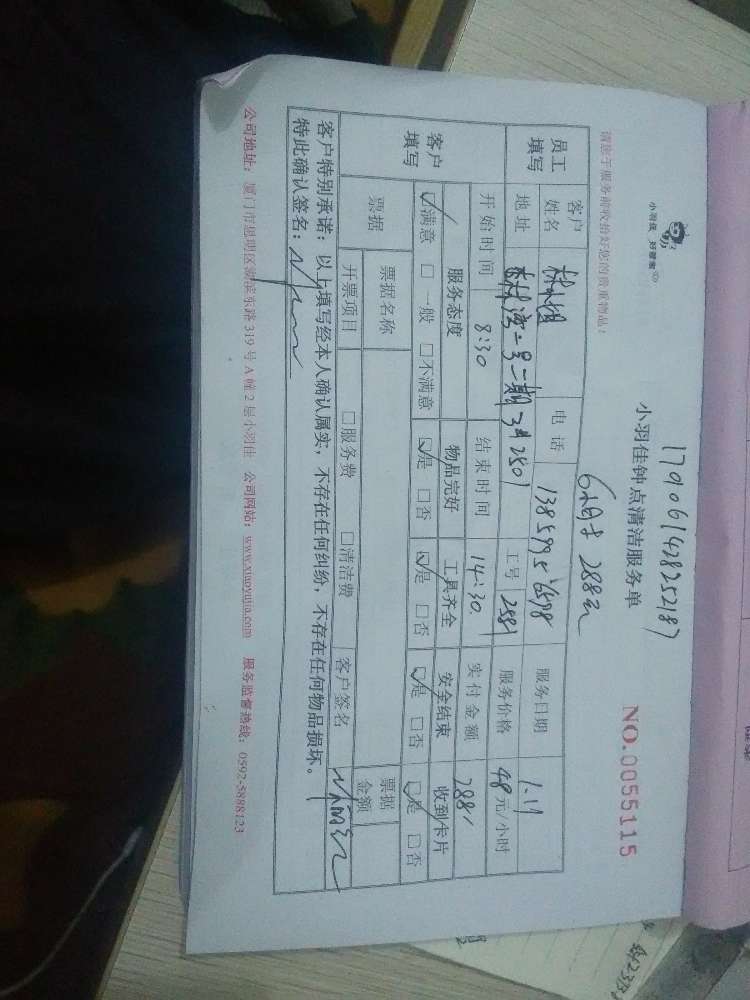 小羽佳 好管家
179061428252187
小羽佳钟点清洁服务单
NO.0055115
请您于服务前收拾好您的贵重物品!
6小时 288元
员工填写
客户姓名 林小姐 电话 服务日期 1.17
地址 二号二期 2501 工号 2881 服务价格 48元/小时
开始时间 8:30 结束时间 14:30 实付金额 288
客户填写
服务态度 物品完好 工具齐全 安全结束 收到卡片
☑满意 □一般 □不满意 ☑是 □否 ☑是 □否 ☑是 □否 ☑是 □否
票据 票据名称 票据金额
开票项目 □服务费 □清洁费 客户签名
客户特别承诺:以上填写经本人确认属实,不存在任何纠纷,不存在任何物品损坏。
特此确认签名:
公司地址:厦门市思明区湖滨东路319号A幢2层小羽佳 公司网站:www.xiaoyujia.com 服务监督热线:0592-5888123